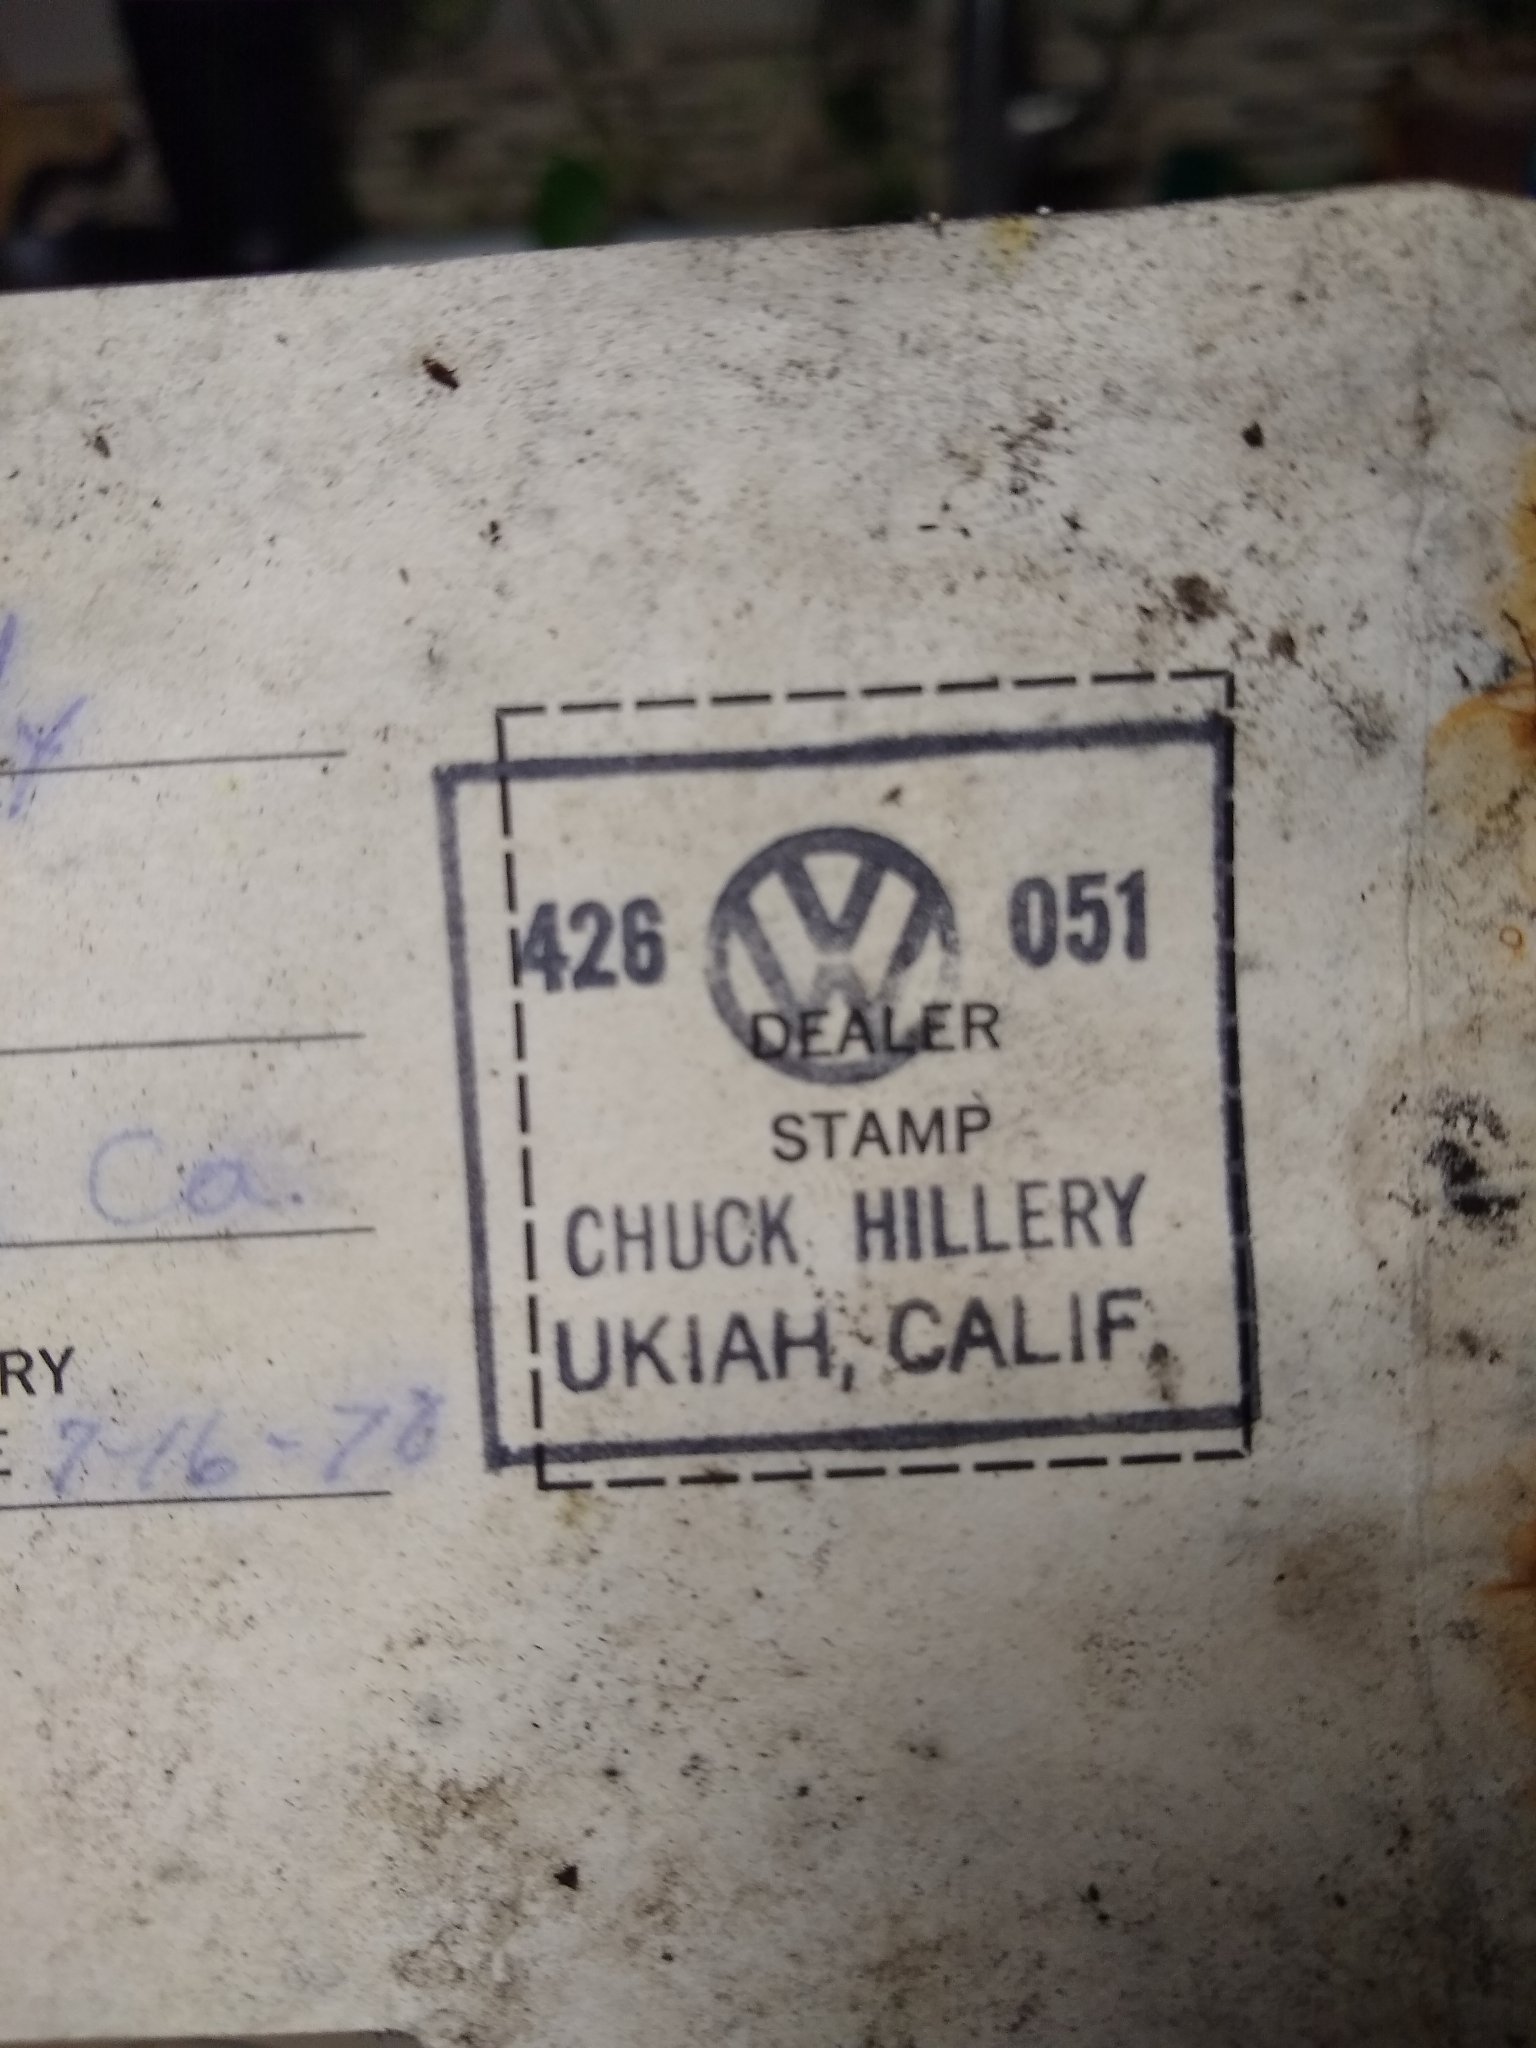 y
426 VW 051
DEALER
STAMP
Ca.
CHUCK HILLERY
UKIAH, CALIF.
RY
E 7-16-78